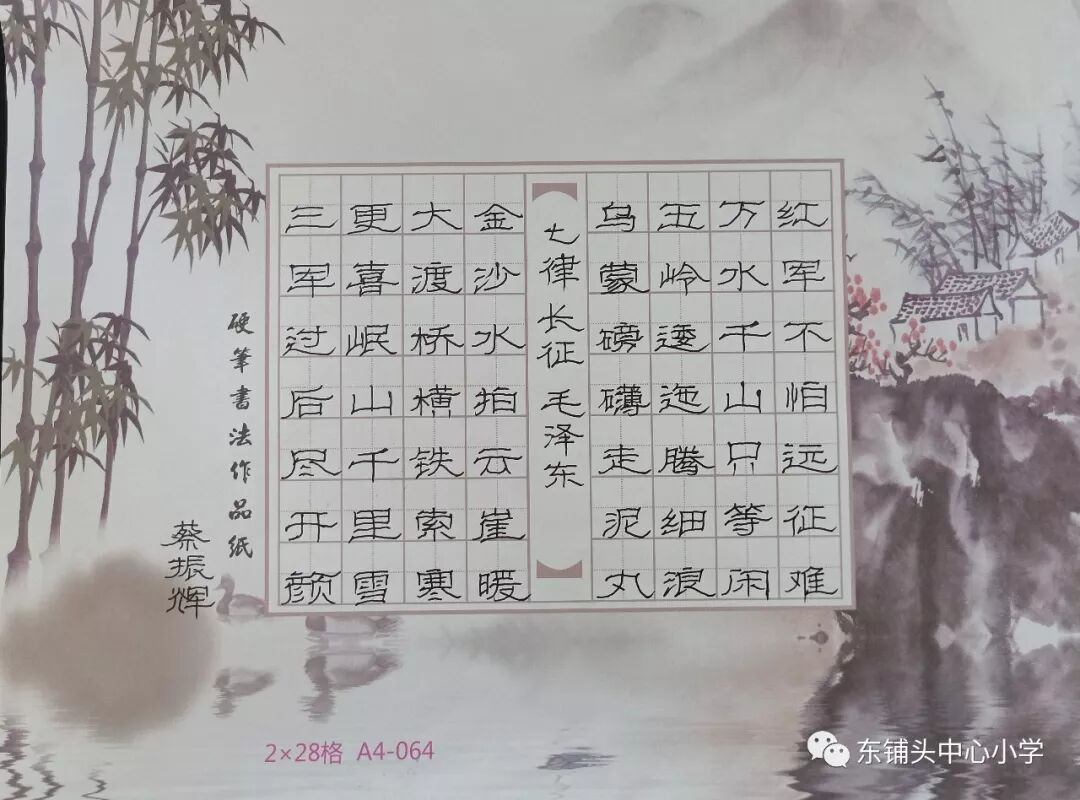 红军不怕远征难
万水千山只等闲
五岭逶迤腾细浪
乌蒙磅礴走泥丸
七律长征 毛泽东
金沙水拍云崖暖
大渡桥横铁索寒
更喜岷山千里雪
三军过后尽开颜
硬筆書法作品纸
蔡振辉
2×28格 A4-064
东铺头中心小学